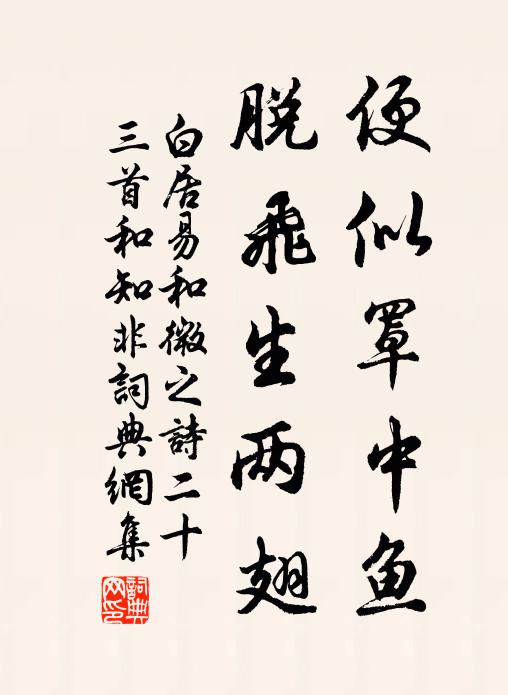 便似罩中鱼
脱飛生两翅
白居易和微之詩二十
三首和知非詞典網集
詞典網印